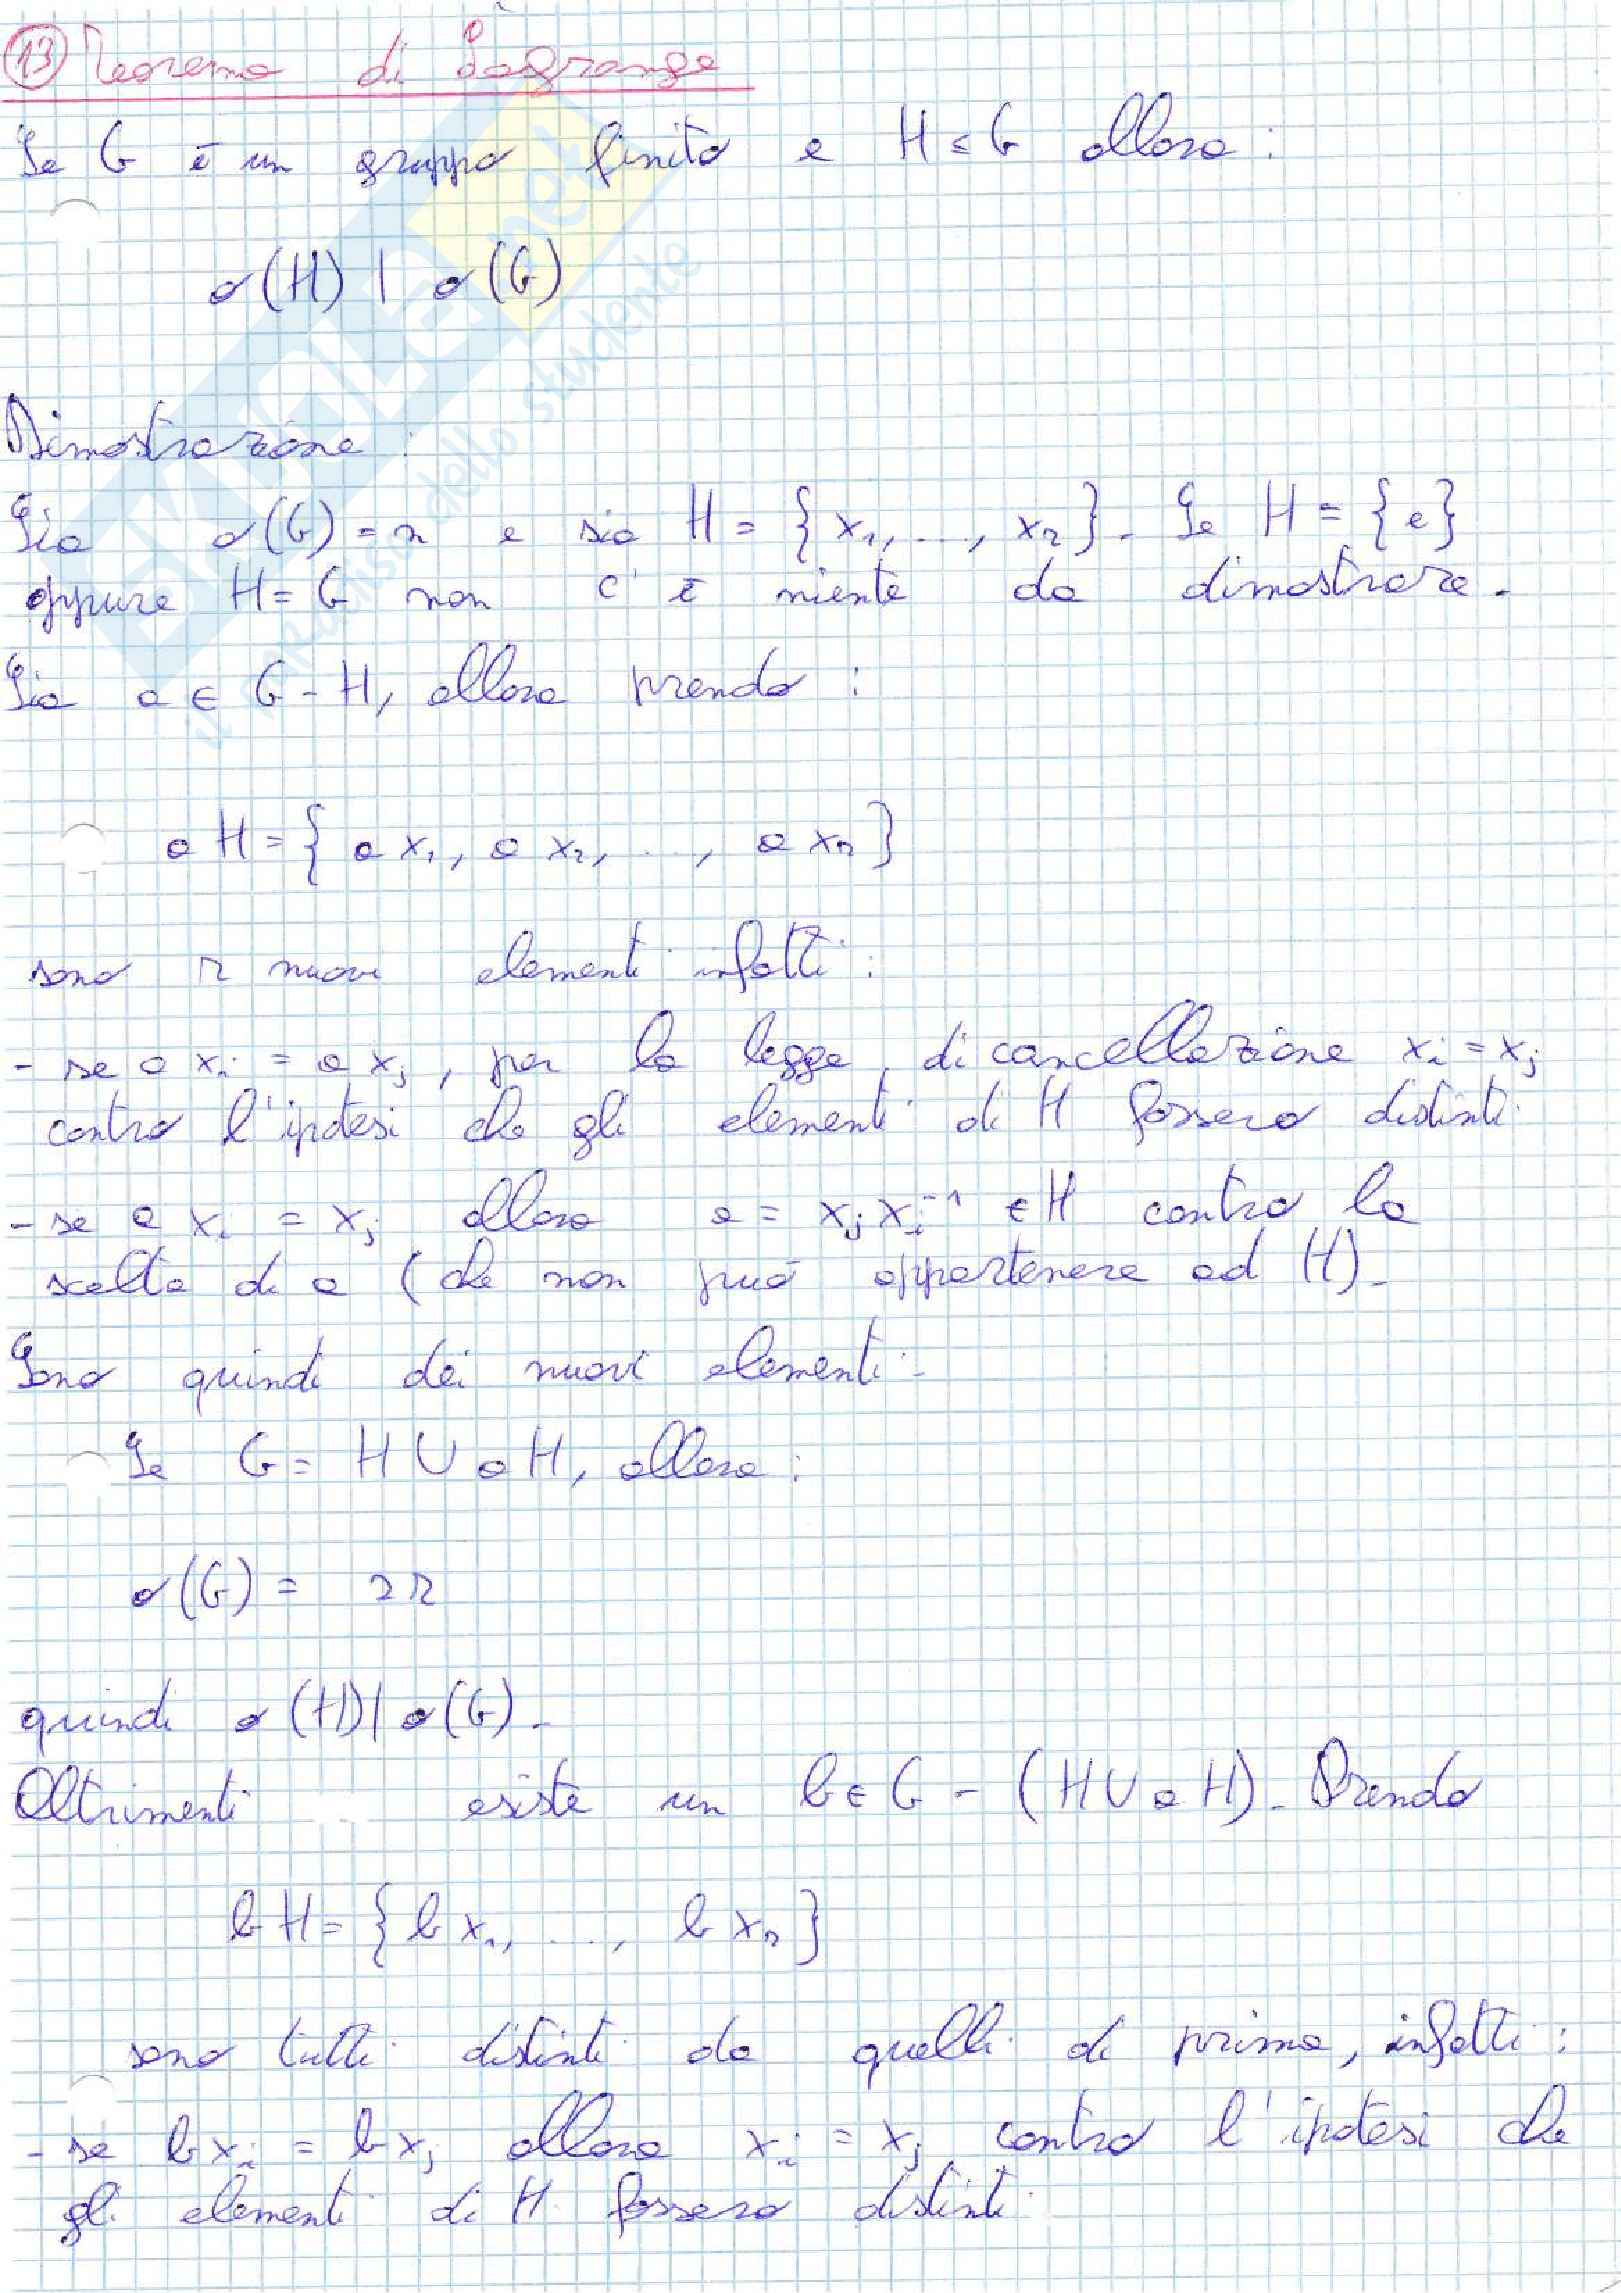 13 Teorema di Lagrange
Se G è un gruppo finito e H ≤ G allora :
o(H) | o(G)
Dimostrazione :
Sia o(G) = n e sia H = { x₁, ..., xr }. Se H = { e }
oppure H = G non c'è niente da dimostrare.
Sia a ∈ G - H, allora prendo :
a H = { a x₁, a x₂, ..., a xr }
sono r nuovi elementi infatti :
- se a xi = a xj, per la legge di cancellazione xi = xj
contro l'ipotesi che gli elementi di H fossero distinti
- se a xi = xj allora a = xj xi⁻¹ ∈ H contro la
scelta di a (che non può appartenere ad H).
Sono quindi dei nuovi elementi.
Se G = H ∪ a H, allora :
o(G) = 2r
quindi o(H) | o(G).
Altrimenti esiste un b ∈ G - (H ∪ a H). Prendo
b H = { b x₁, ..., b xr }
sono tutti distinti da quelli di prima, infatti :
- se b xi = b xj allora xi = xj contro l'ipotesi che
gli elementi di H fossero distinti
SKUOLA.net
il paradiso dello studente